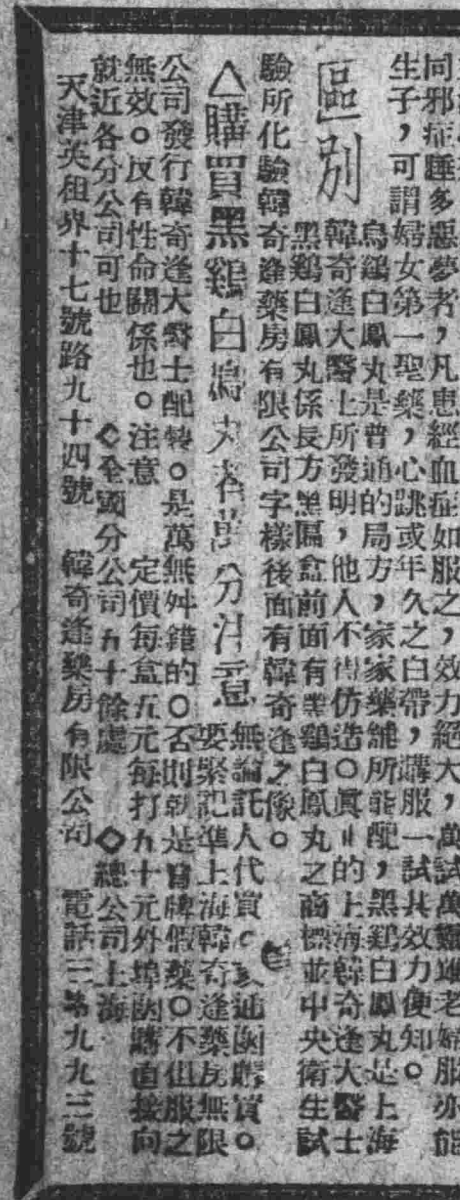 同邪症睡多惡夢者，凡患經血症如服之，效力絕大，萬試萬靈雖老婦服亦能
生子，可謂婦女第一聖藥，心跳或年久之白帶，購服一試其效力便知。
區别
烏鷄白鳳丸是普通的局方，家家藥舖所能配，黑鷄白鳳丸是上海
韓奇逢大醫士所發明，他人不得仿造○眞正的上海韓奇逢大醫士
黑鷄白鳳丸係長方黑匾盒前面有黑鷄白鳳丸之商標並中央衛生試
驗所化驗韓奇逢藥房有限公司字樣後面有韓奇逢之像。
△購買黑鷄白鳳丸者萬分注意
無論託人代買 通函購買。
要緊記準上海韓奇逢藥房無限
公司發行韓奇逢大醫士配轉。是萬無舛錯的○否則就是冒牌假藥○不但服之
無效○反有性命關係也○注意 定價每盒五元每打五十元外埠函購直接向
就近各分公司可也 ◇全國分公司五十餘處 ◇總公司上海
天津英租界十七號路九十四號 韓奇逢藥房有限公司 電話三 九九三號